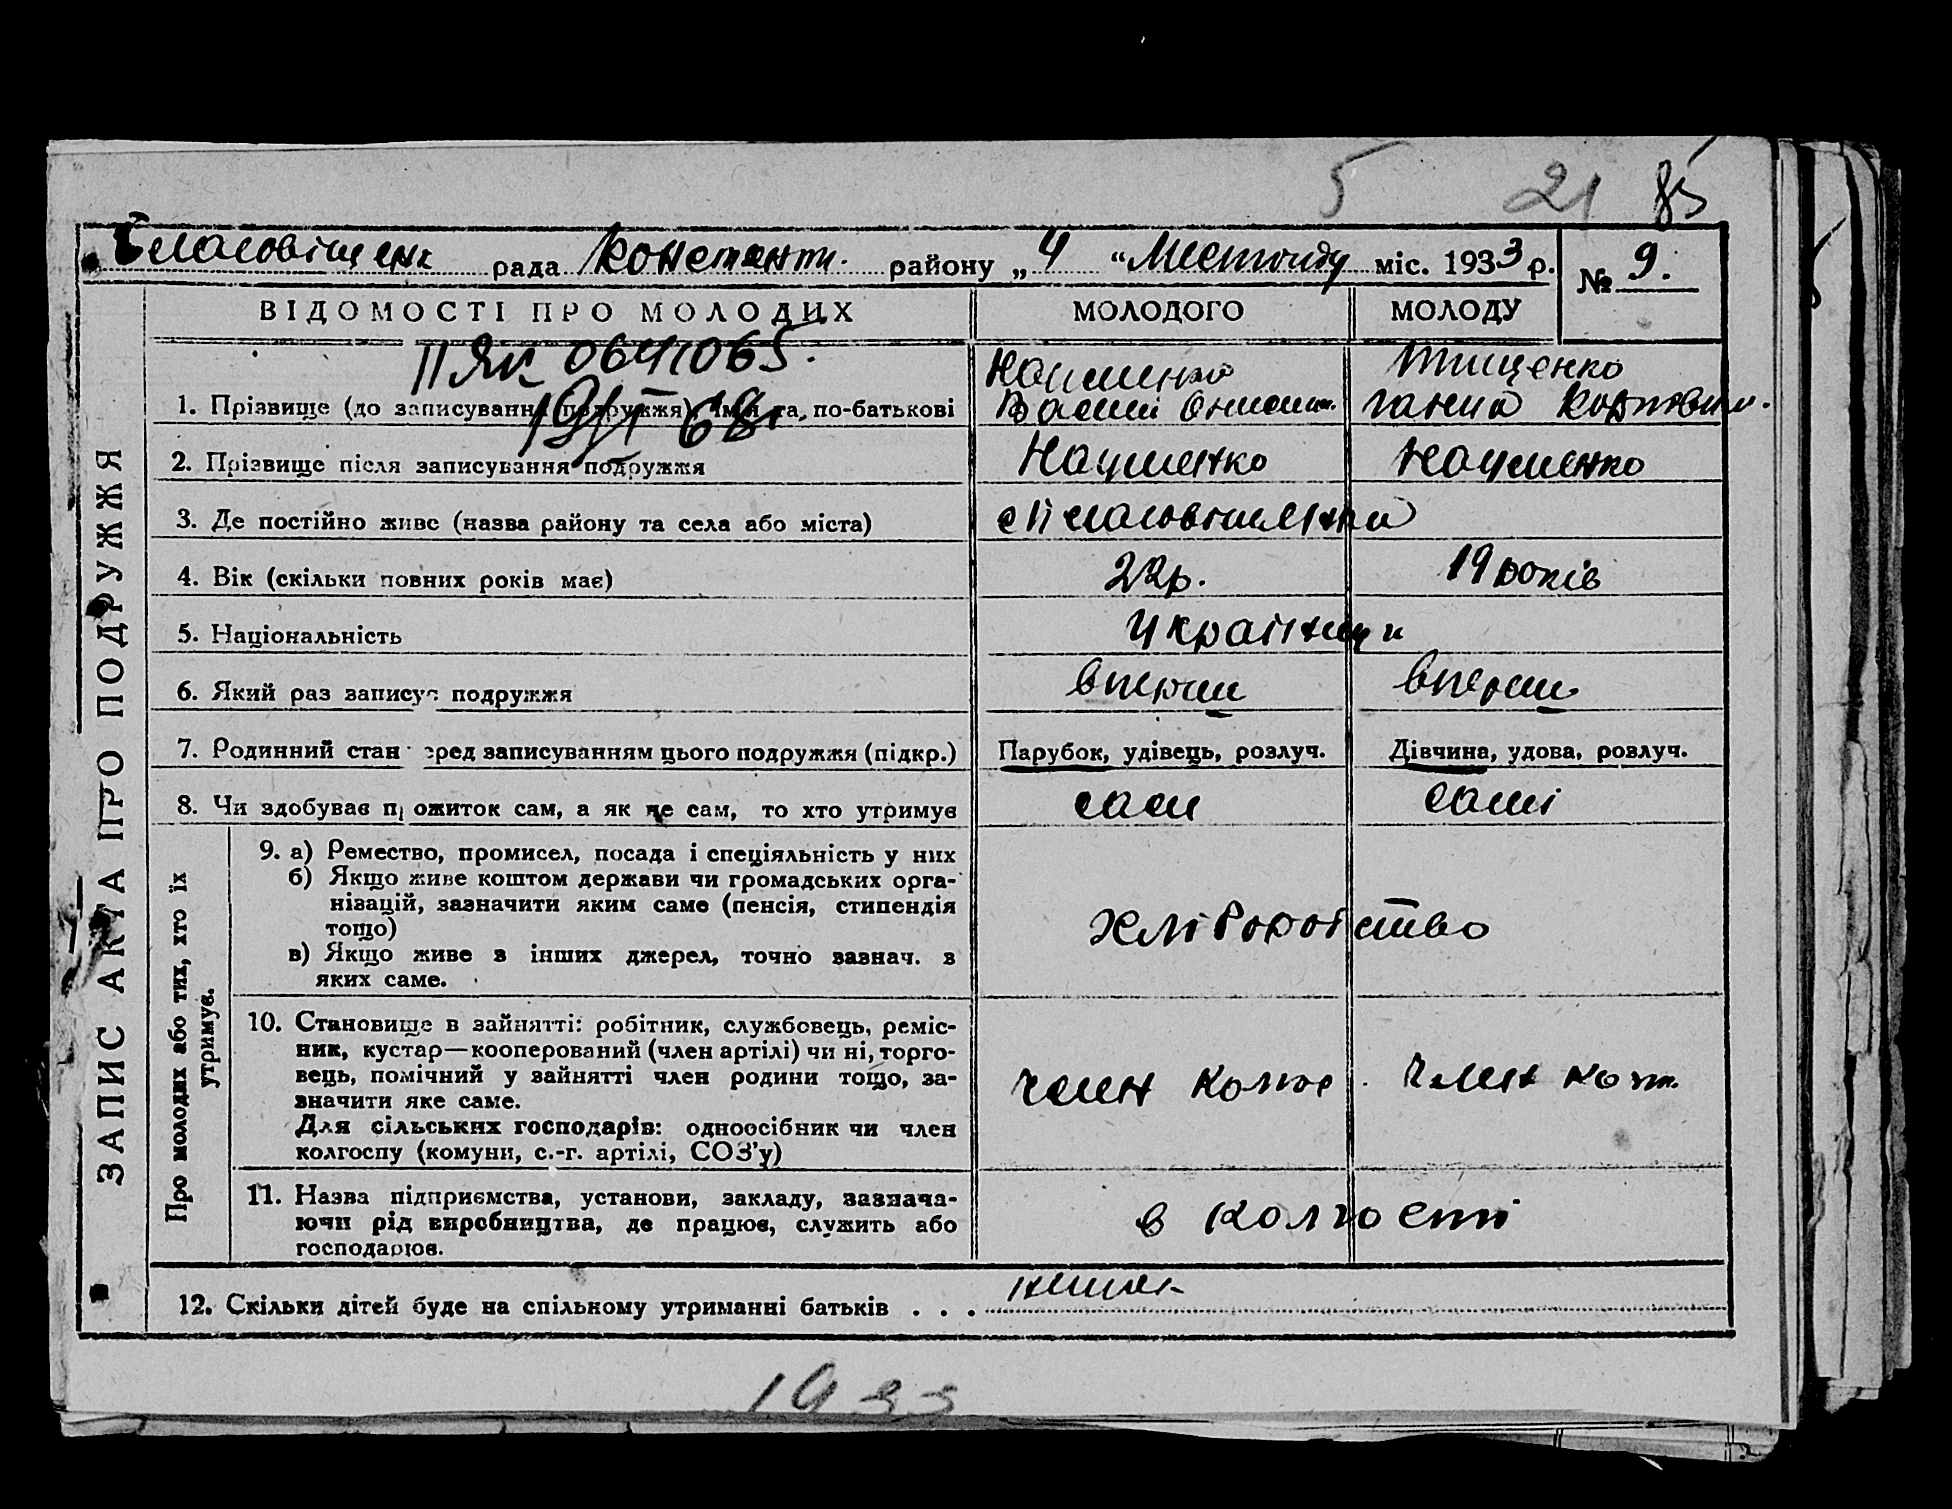 5 21 85
Благовіщенк рада Констянти. району „4 “ Листопаду міс. 1933 р. № 9.
ВІДОМОСТІ ПРО МОЛОДИХ МОЛОДОГО МОЛОДУ
II ЯК 0641065.
Науменко Тищенко
1. Прізвище (до записування подружжя), ім'я та по-батькові Василь Ганна Карповна.
19/I 68
2. Прізвище після записування подружжя Науменко Науменко
3. Де постійно живе (назва району та села або міста)
4. Вік (скільки повних років має) 22р. 19 років
5. Національність Українци
6. Який раз записує подружжя вперши вперши
7. Родинний стан перед записуванням цього подружжя (підкр.) Парубок, удівець, розлуч. Дівчина, удова, розлуч.
8. Чи здобував прожиток сам, а як не сам, то хто утримує сам самі
ЗАПИС АКТА ПРО ПОДРУЖЖЯ
Про молодих або тих, хто їх
утримує.
9. а) Ремество, промисел, посада і спеціяльність у них
б) Якщо живе коштом держави чи громадських орга-
нізацій, зазначити яким саме (пенсія, стипендія
тощо) хліборобство
в) Якщо живе з інших джерел, точно зазнач. з
яких саме.
10. Становище в зайнятті: робітник, службовець, реміс-
ник, кустар—кооперований (член артілі) чи ні, торго-
вець, помічний у зайнятті член родини тощо, за-
значити яке саме. член колг. член колг.
Для сільських господарів: одноосібник чи член
колгоспу (комуни, с.-г. артілі, СОЗ'у)
11. Назва підприємства, установи, закладу, зазнача-
ючи рід виробництва, де працює, служить або в колгоспі
господарює.
12. Скільки дітей буде на спільному утриманні батьків . . .
1933